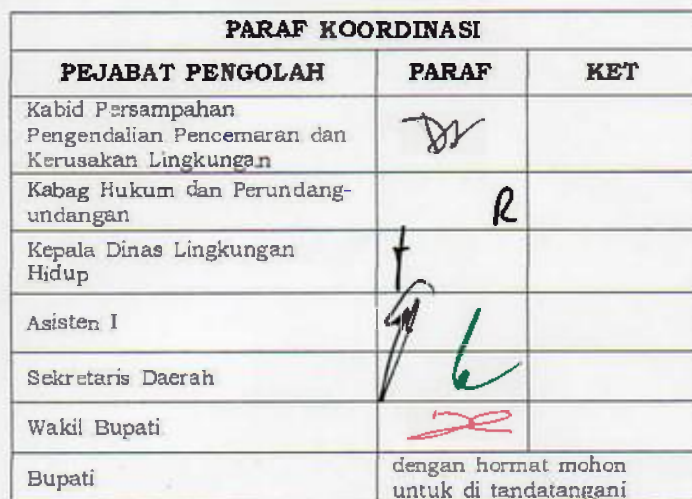 PARAF KOORDINASI
PEJABAT PENGOLAH PARAF KET
Kabid Persampahan
Pengendalian Pencemaran dan
Kerusakan Lingkungan
Kabag Hukum dan Perundang-
undangan
R
Kepala Dinas Lingkungan
Hidup
Asisten I
Sekretaris Daerah
Wakil Bupati
Bupati
dengan hormat mohon
untuk di tandatangani